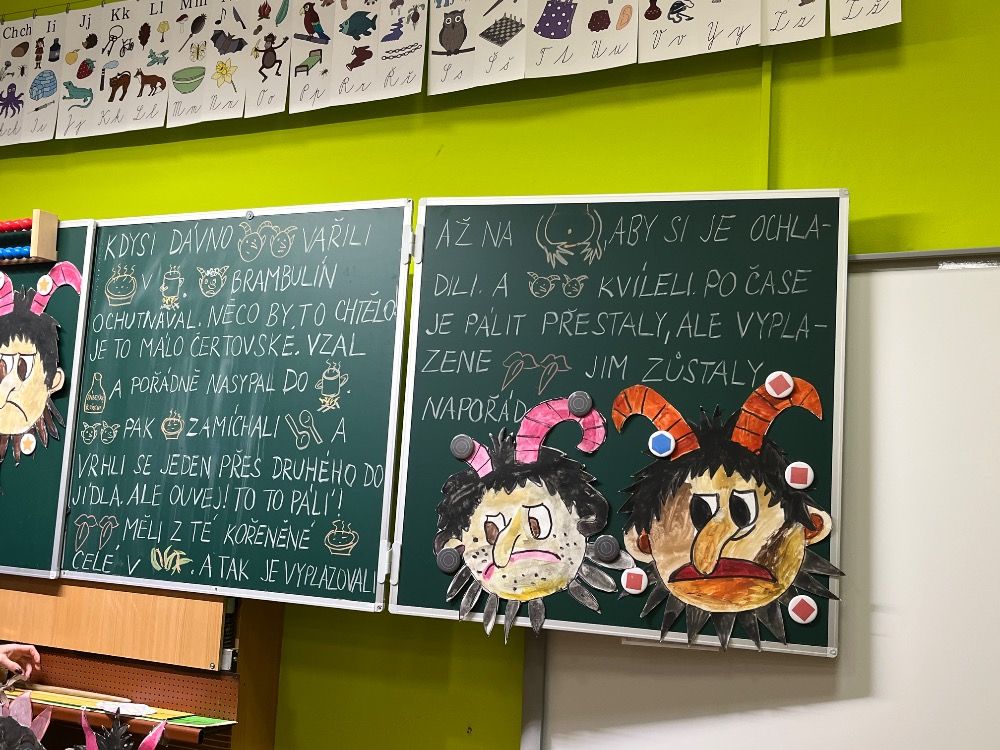 Chch Ii Jj Kk Ll Mm
Jj Kk Ll Mm Nn Oo Pp Rr Řř Ss Šš Tt Uu Vv Yy Zz Žž
KDYSI DÁVNO VAŘILI
V . BRAMBULÍN
OCHUTNÁVAL. NĚCO BY TO CHTĚLO.
JE TO MÁLO ČERTOVSKÉ. VZAL
A POŘÁDNĚ NASYPAL DO .
PAK ZAMÍCHALI A
VRHLI SE JEDEN PŘES DRUHÉHO DO
JÍDLA. ALE OUVEJ! TO TO PÁLÍ!
MĚLI Z TÉ KOŘENĚNÉ
CELÉ V . A TAK JE VYPLAZOVALI
AŽ NA , ABY SI JE OCHLA-
DILI. A KVÍLELI. PO ČASE
JE PÁLIT PŘESTALY, ALE VYPLA-
ZENE JIM ZŮSTALY
NAPOŘÁD